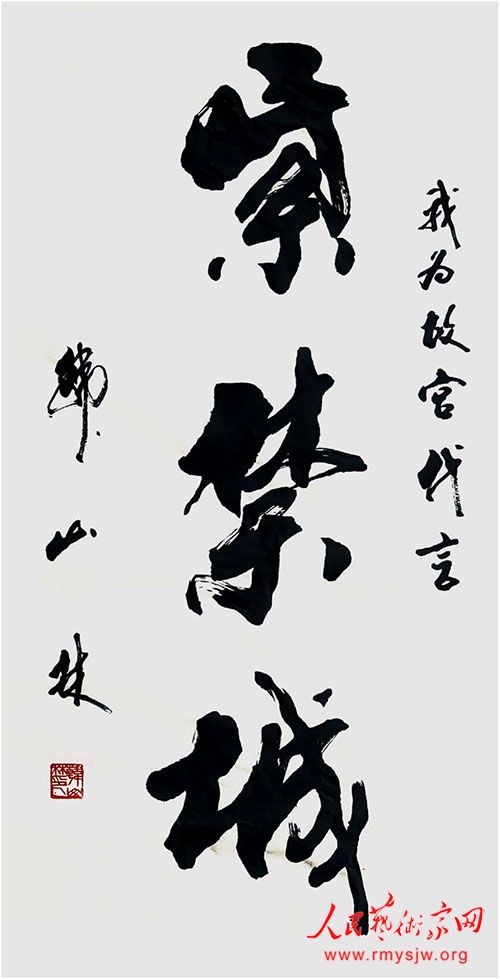 我为故宫代言
紫禁城
韩山林
人民藝術家网
www.rmysjw.org